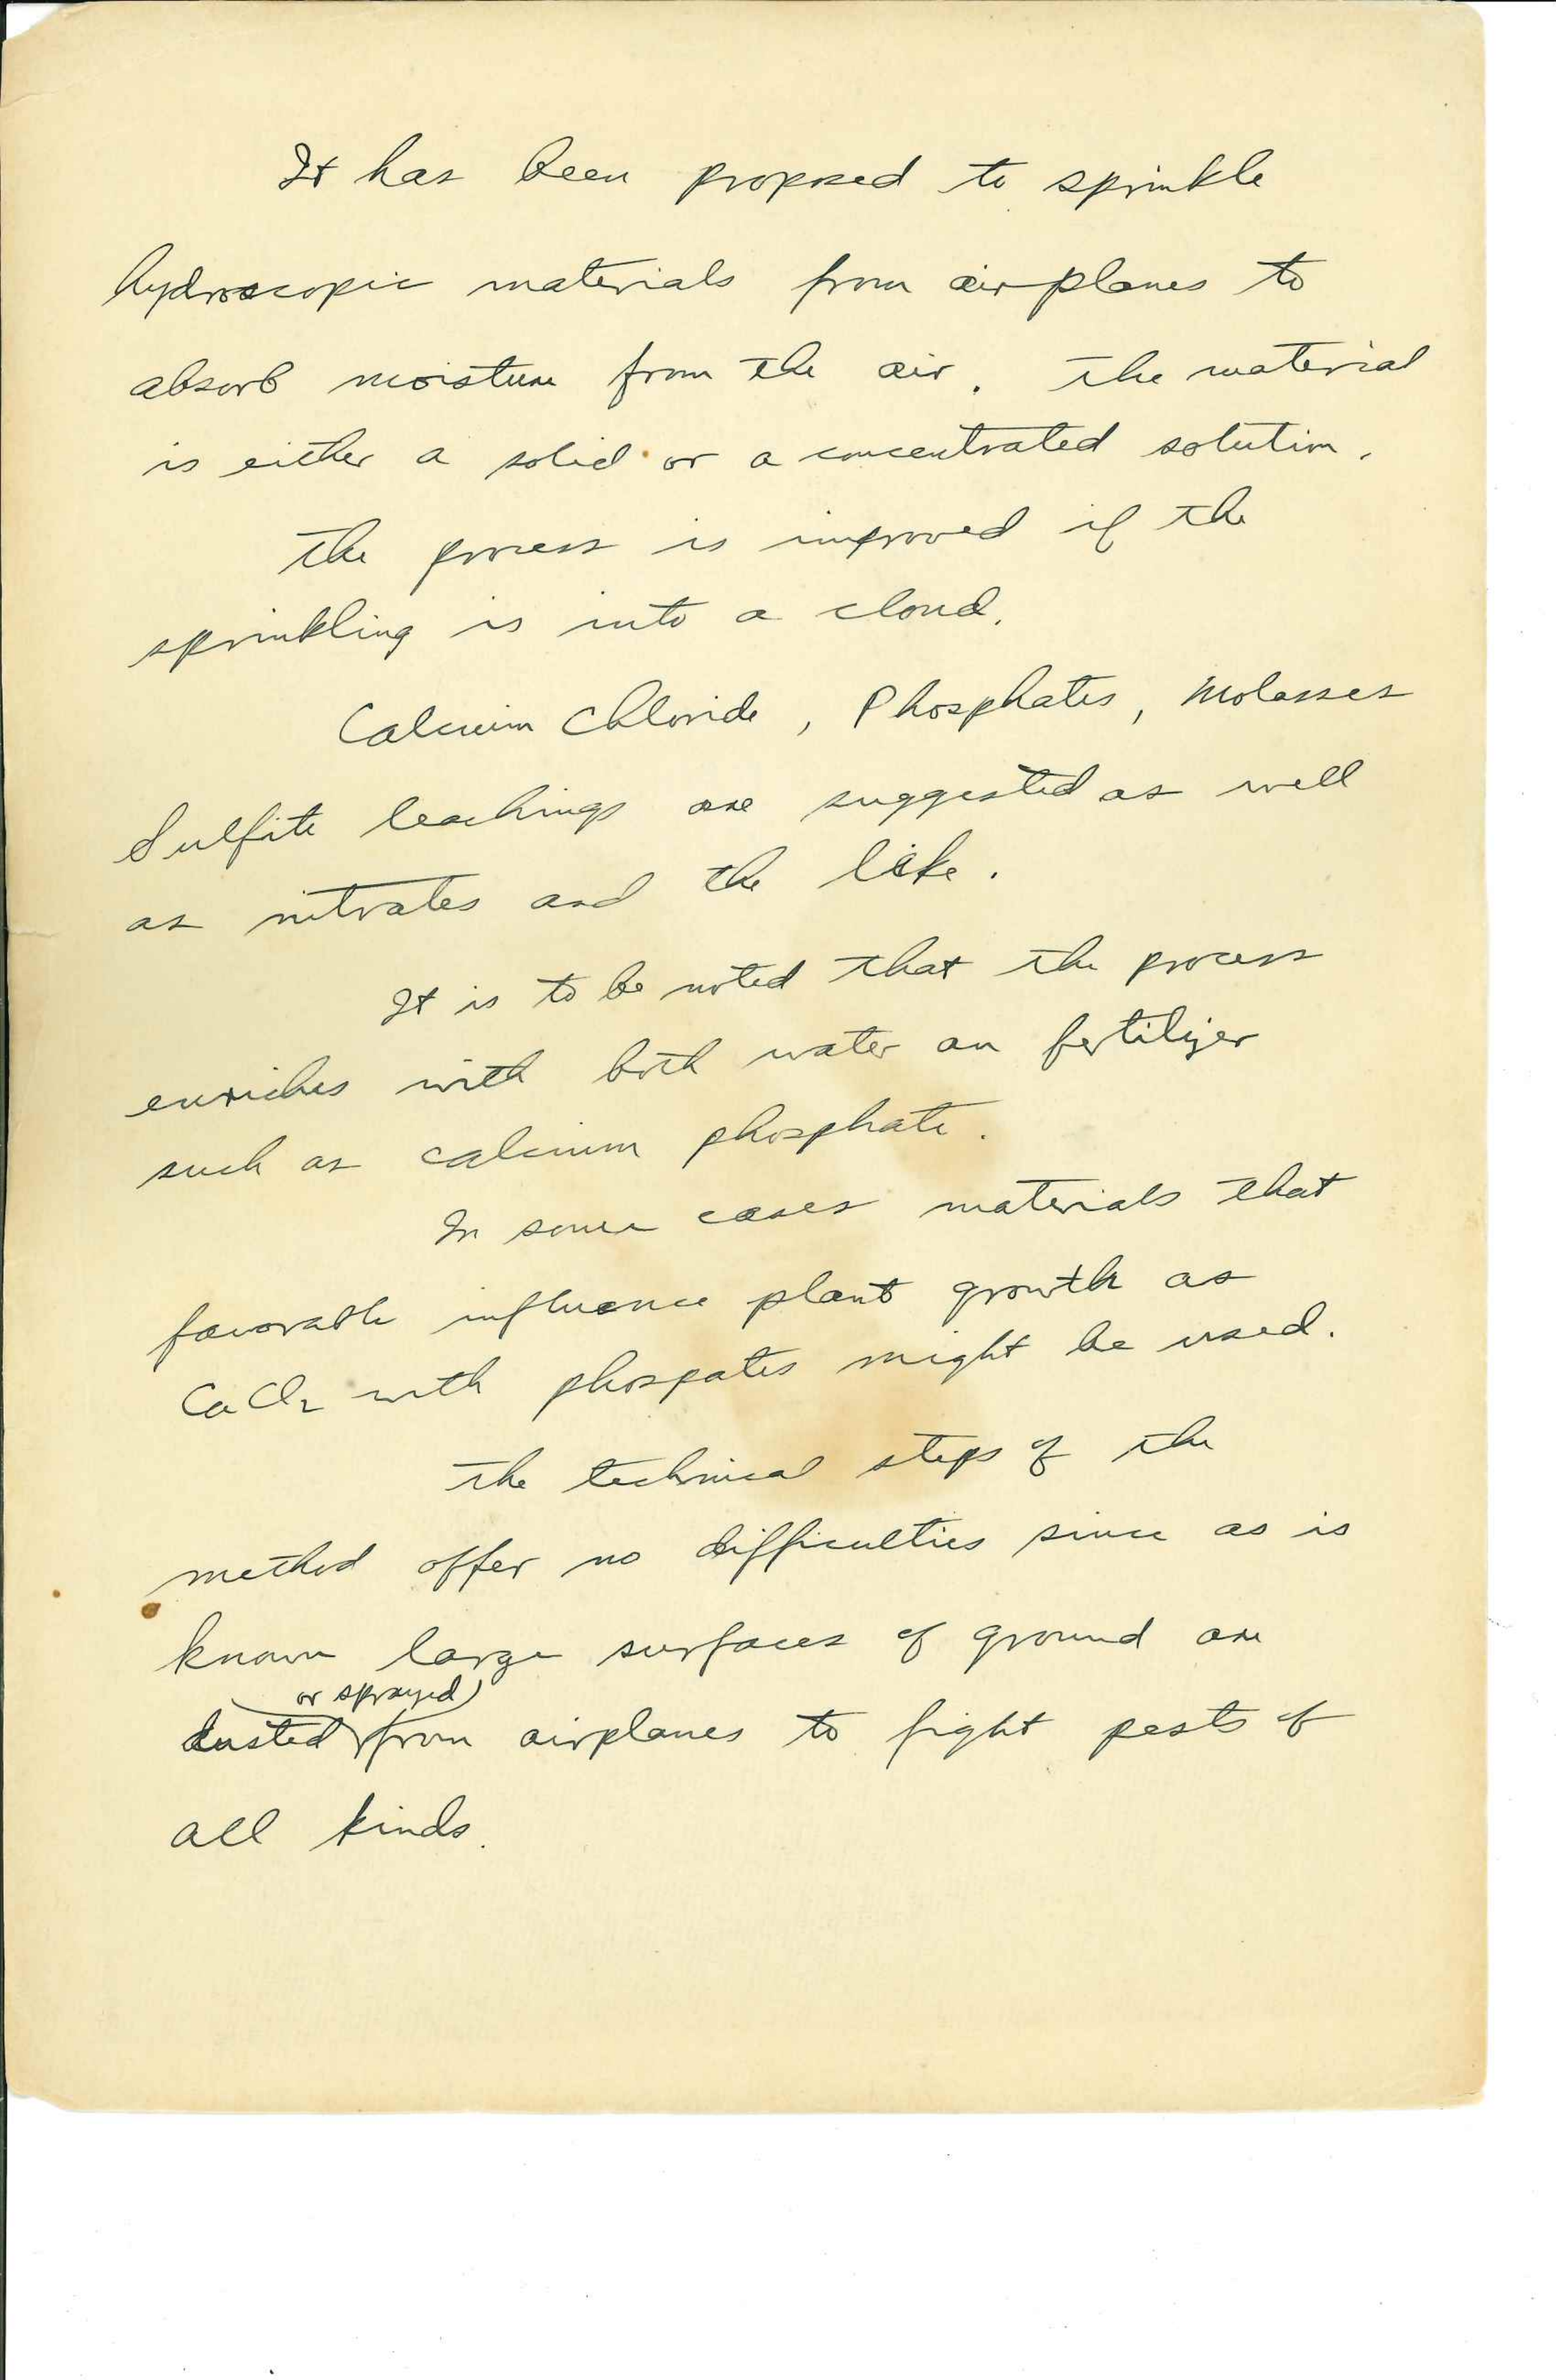 It has been proposed to sprinkle
hydroscopic materials from airplanes to
absorb moisture from the air. The material
is either a solid or a concentrated solution.
The process is improved if the
sprinkling is into a cloud.
Calcium Chloride, Phosphates, Molasses
Sulfite leachings are suggested as well
as nitrates and the like.
It is to be noted that the process
enriches with both water an fertilizer
such as calcium phosphate.
In some cases materials that
favorable influence plant growth as
CaCl2 with phospates might be used.
The technical steps of the
method offer no difficulties since as is
known large surfaces of ground are
or sprayed
dusted from airplanes to fight pests of
all kinds.